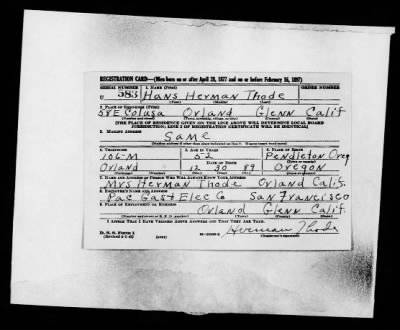 REGISTRATION CARD—(Men born on or after April 28, 1877 and on or before February 16, 1897)
SERIAL NUMBER 1. NAME (Print) ORDER NUMBER
U 583 Hans Herman Thode
(First) (Middle) (Last)
2. PLACE OF RESIDENCE (Print)
58 E Colusa Orland Glenn Calif
(Number and street) (Town, township, village, or city) (County) (State)
[THE PLACE OF RESIDENCE GIVEN ON THE LINE ABOVE WILL DETERMINE LOCAL BOARD
JURISDICTION; LINE 2 OF REGISTRATION CERTIFICATE WILL BE IDENTICAL]
3. MAILING ADDRESS
Same
[Mailing address if other than place indicated on line 2. If same insert word same]
4. TELEPHONE 5. AGE IN YEARS 6. PLACE OF BIRTH
106-M 52 Pendleton Oreg
DATE OF BIRTH
Orland 12 30 89 Oregon
(Exchange) (Number) (Mo.) (Day) (Yr.) (State or country)
7. NAME AND ADDRESS OF PERSON WHO WILL ALWAYS KNOW YOUR ADDRESS
Mrs Herman Thode Orland Calif.
8. EMPLOYER'S NAME AND ADDRESS
Pac Gas & Elec Co San Francisco
9. PLACE OF EMPLOYMENT OR BUSINESS
Orland Glenn Calif.
(Number and street or R. F. D. number) (Town) (County) (State)
I AFFIRM THAT I HAVE VERIFIED ABOVE ANSWERS AND THAT THEY ARE TRUE.
D. S. S. Form 1
(Revised 4-1-42) Herman Thode